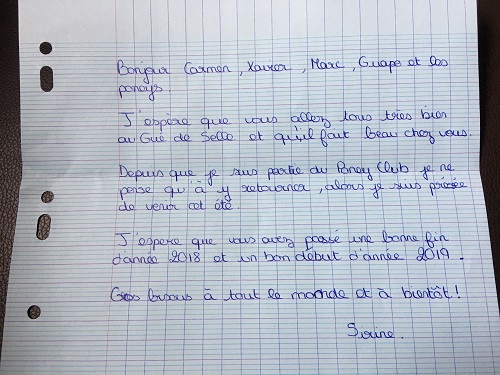 Bonjour Carmen, Xavier, Marc, Guapo et les
poneys.
J'espère que vous allez tous très bien
au Gué de Selle et qu'il fait beau chez vous.
Depuis que je suis partie du Poney Club je ne
pense qu'à y retourner, alors je suis pressée
de venir cet été.
J'espère que vous avez passé une bonne fin
d'année 2018 et un bon début d'année 2019.
Gros bisous à tout le monde et à bientôt!
Sirine.